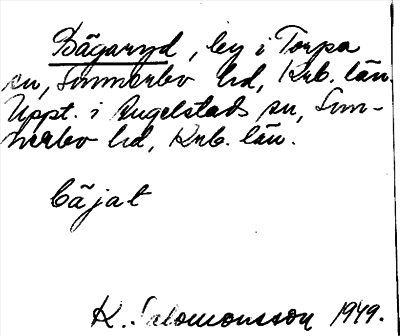 Bägaryd, by i Torpa
sn, Sunnerbo hd, Krb. län.
Uppt. i Angelstads sn, Sun-
nerbo hd, Krb. län.
bäjat
K. Salomonsson 1949.